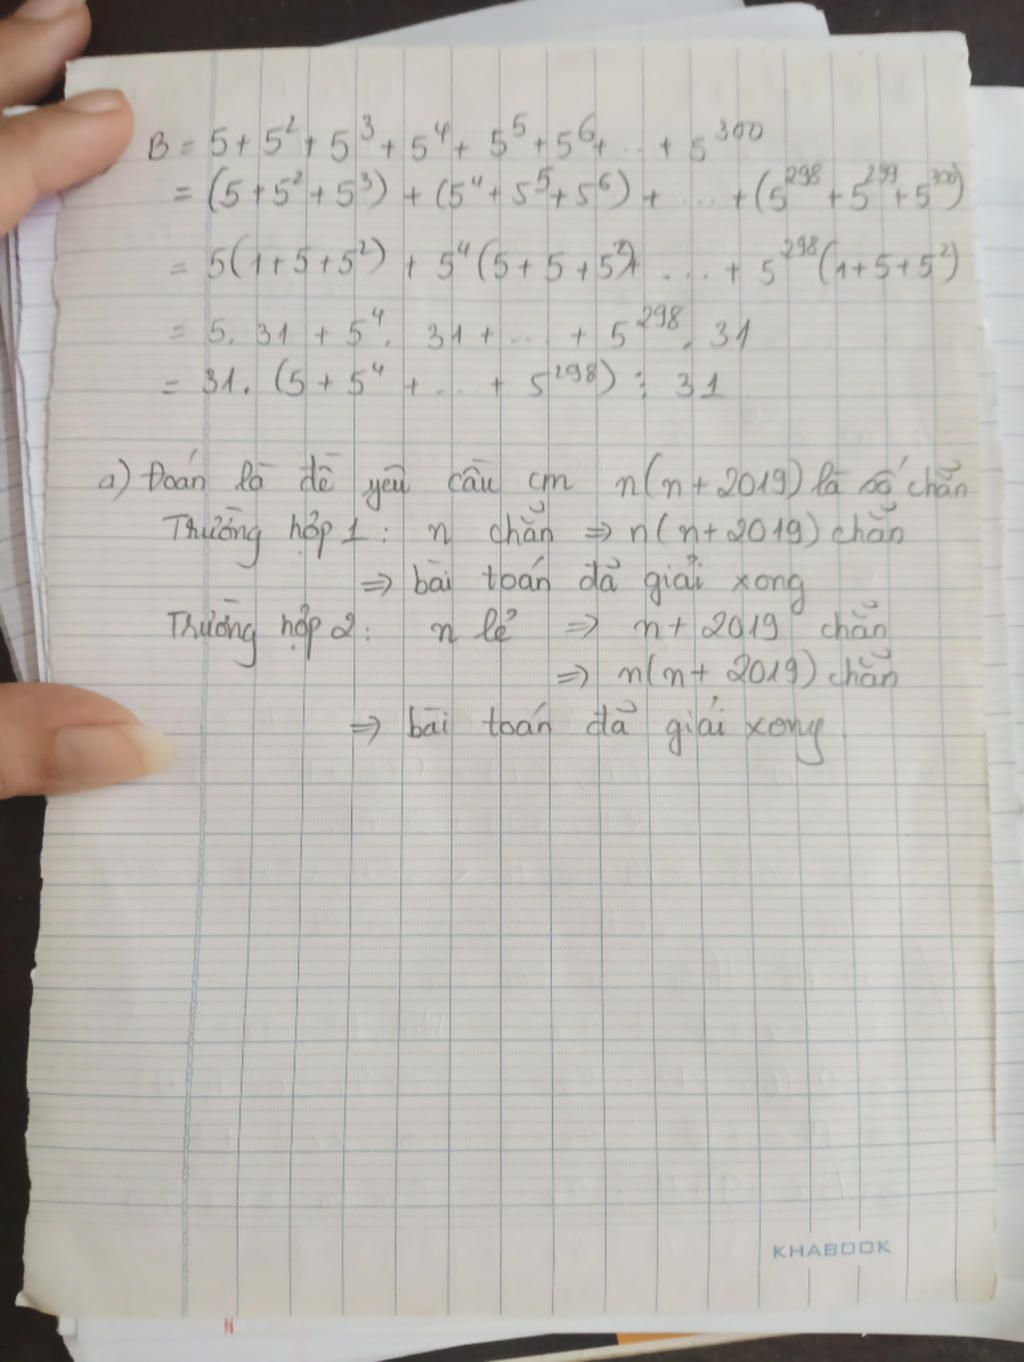 B = 5 + 5² + 5³ + 5⁴ + 5⁵ + 5⁶ + ... + 5³⁰⁰
= (5 + 5² + 5³) + (5⁴ + 5⁵ + 5⁶) + ... + (5²⁹⁸ + 5²⁹⁹ + 5³⁰⁰)
= 5(1 + 5 + 5²) + 5⁴(5 + 5 + 5²) + ... + 5²⁹⁸(1 + 5 + 5²)
= 5. 31 + 5⁴. 31 + ... + 5²⁹⁸. 31
= 31. (5 + 5⁴ + ... + 5²⁹⁸) ⋮ 31
a) Đoán là đề yêu cầu cm n(n + 2019) là số chẵn
Trường hợp 1 : n chẵn ⇒ n(n + 2019) chẵn
⇒ bài toán đã giải xong
Trường hợp 2 : n lẻ ⇒ n + 2019 chẵn
⇒ n(n + 2019) chẵn
⇒ bài toán đã giải xong
KHABOOK